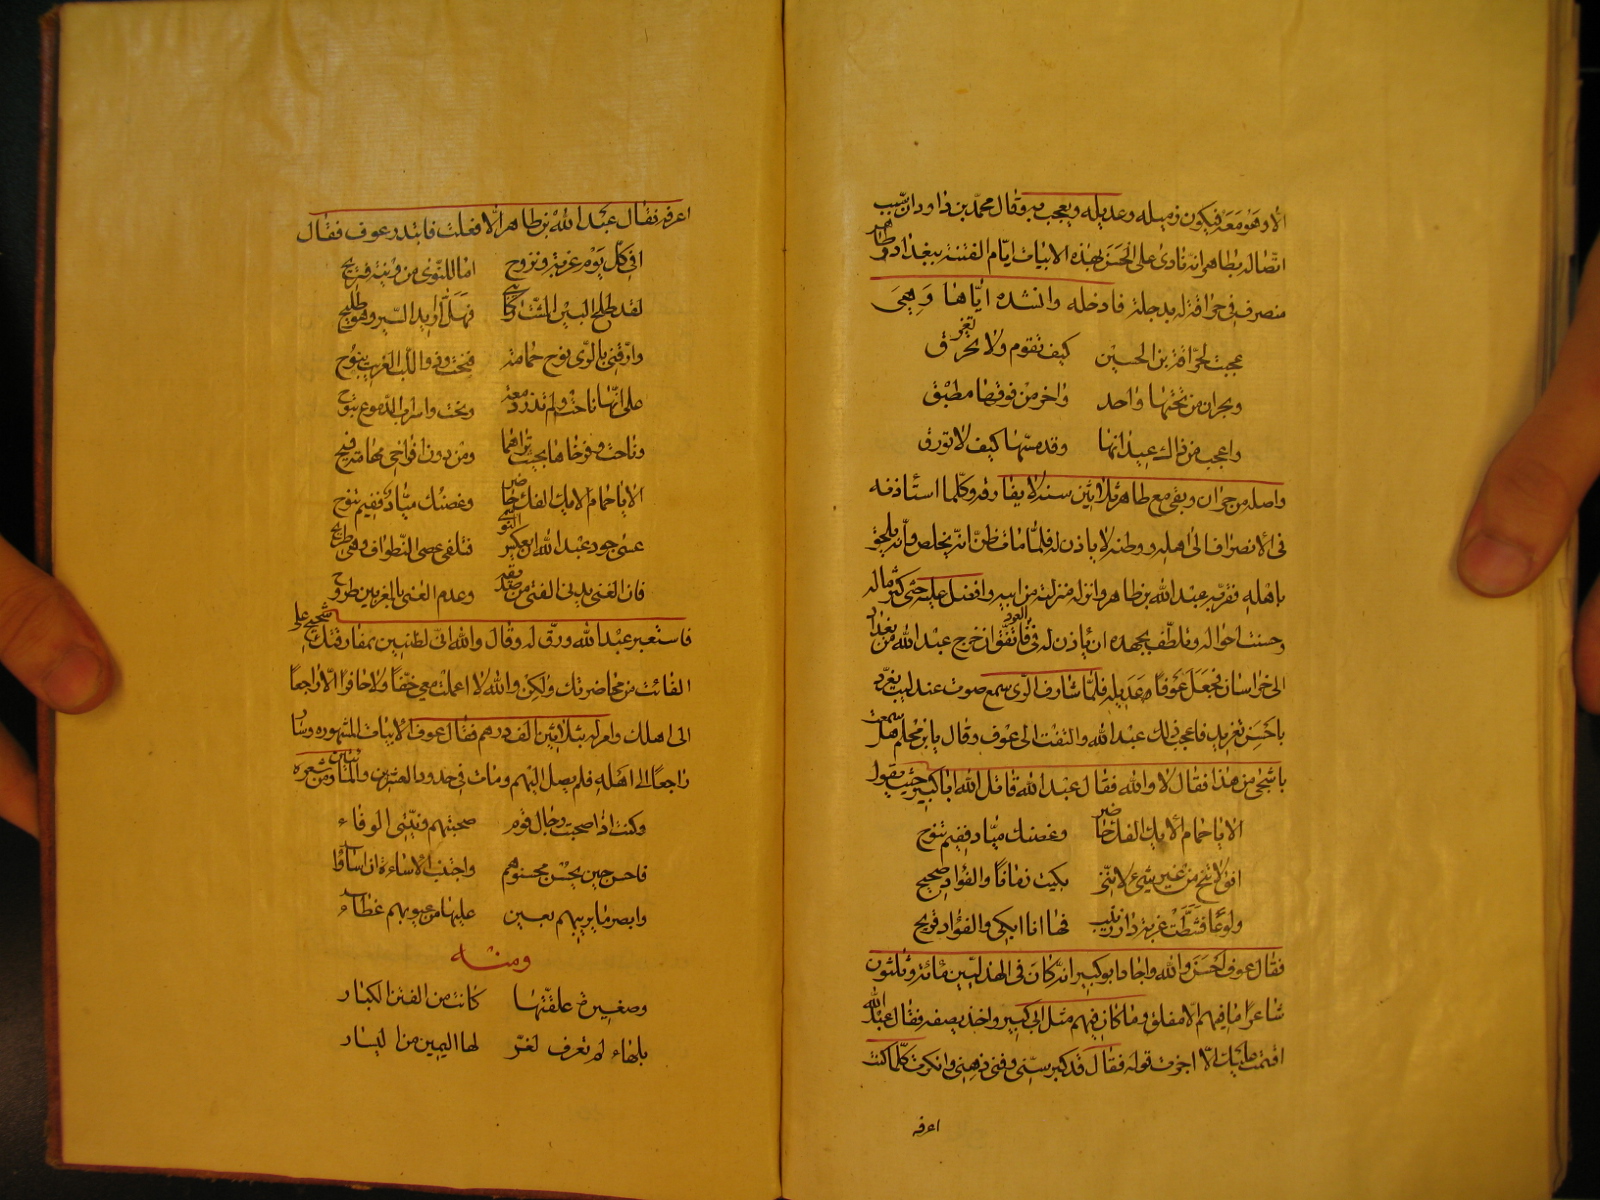 الا وهو معه فيكون زميله وعديله ويعجب به وقال محمد بن داود ان سبب
اتصاله بطاهر انه نادى على الجسر بهذه الابيات ايام الفتنة ببغداد وطاهر
منصرف في حراقة له بدجلة فادخله وانشده اياها وهي
عجبت لحراقة بن الحسين كيف تقوم ولا تغرق
وبحران من تحتها واحد واخر من فوقها مطبق
واعجب من ذاك عيدانها وقد مسها كيف لا تورق
واصله من حران وبقي مع طاهر ثلاثين سنة لا يفارقه وكلما استأذنه
في الانصراف الى اهله ووطنه لا ياذن له فلما مات ظن انه تخلص وانه يلحق
باهله فقربه عبد الله بن طاهر وانزله منزلته من ابيه وافضل عليه حتى كثر ماله
وحسنت احواله وتلطف بجهده ان ياذن له في العود فاتفق ان خرج عبد الله من بغداد
الى خراسان فجعل عوفا عديله فلما شارف الري سمع صوت عندليب يغرد
باحسن تغريد فاعجب ذلك عبد الله والتفت الى عوف وقال يا بن محلم هل سمعت
باشجى من هذا فقال لا والله فقال عبد الله قاتل الله ابا كبير حيث يقول
الا يا حمام الايك الفك حاضر وغصنك مياد ففيم تنوح
افق لا تنح من غير شيء لانني بكيت زمانا والفواد صحيح
ولوعا فشطت غربة دار زينب فها انا ابكي والفؤاد قريح
فقال عوف احسن والله واجاد ابو كبير انه كان في الهذليين مائة وثلثون
شاعرا ما فيهم الا مفلق وما كان فيهم مثل ابي كبير واخذ يصفه فقال عبد الله
اقسمت عليك الا اجزت قوله فقال قد كبر سني وفني ذهني وانكرت كلما كنت
اعرفه
اعرفه فقال عبد الله بن طاهر الا فعلت فابتدر عوف فقال
افي كل يوم غربة ونزوح اما للنوى من ونية فتريح
لقد طلح البين المشت ركائبي فهل ارين البين وهو طليح
وارقني بالري نوح حمامة فنحت وذو اللب الغريب ينوح
على انها ناحت ولم تذر دمعة ونحت واسراب الدموع سفوح
وناحت وفرخاها بحيث تراهما ومن دون افراخي مهامه فيح
الا يا حمام الايك الفك حاضر وغصنك مياد ففيم تنوح
عسى جود عبد الله ان يعكس النوى فتلقى عصى التطواف وهي طريح
فان الغنى يدني الفتى من صديقه وعدم الغنى بالمغربين طروح
فاستعبر عبد الله ورق له وقال والله اني لضنين بمفارقتك شحيح على
الفائت من محاضرتك ولكن والله لا اعملت معي خفا ولا حافرا الا راجعا
الى اهلك وامر له بثلاثين الف درهم فقال عوف الابيات المشهوره وسار
راجعا الى اهله فلم يصل اليهم ومات في حدود العشرين والمائتين ومن شعره
وكنت اذا صحبت رجال قوم صحبتهم ونيتي الوفاء
فاحسن حين يحسن محسنوهم واجتنب الاساءة ان اساؤا
وابصر ما يريبهم بعين عليها من عيوبهم غطاء
ومنه
وصغيرة علقتها كانت من الفتن الكبار
بلهاء لم تعرف لغر لها اليمين من اليسار